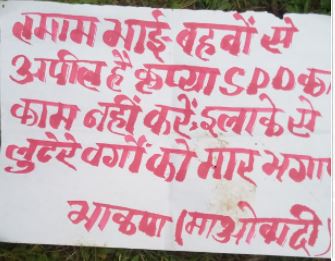 तमाम भाई बहनों से
अपील है कृप्या S.P.O का
काम नहीं करें, इलाके से
लुटेरे वर्गों को मार भगा
भाकपा (माओवादी)